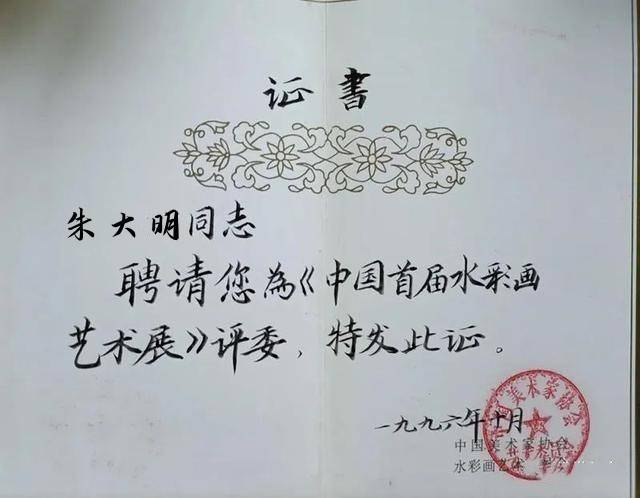 证書
朱大明同志
聘请您為《中国首届水彩画
艺术展》评委，特发此证。
一九九六年十月
中国美术家协会
水彩画艺术